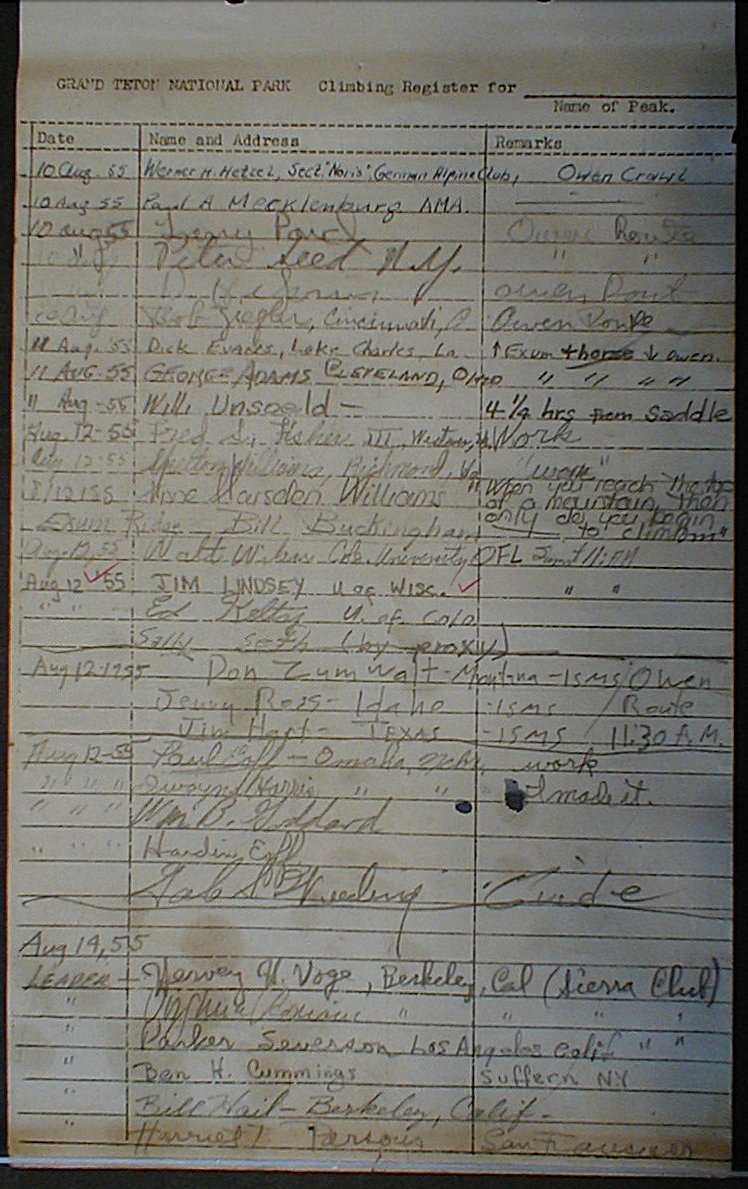 GRAND TETON NATIONAL PARK Climbing Register for
Name of Peak.
Date Name and Address Remarks
10 Aug 55 Werner H. Hetzel, Sect. "Noris", German Alpine Club, Owen Crawl
10 Aug 55 Paul A Mecklenburg AMA.
10 Aug 55 Owen Route
Peter Seed N.Y. " "
Owen Rout
Bob Ziegler, Cincinnati, O Owen Route
11 Aug. 55 Dick Evans, Lake Charles, La ↑Exum ↓ Owen.
11 AUG-55 GEORGE ADAMS CLEVELAND, OHIO " " " "
11 Aug-55 Willi Unsoeld - 4 1/4 hrs from Saddle
Aug. 12-55 Fred S. Fisher III, Work
Aug 12-55 Shelton Williams, Richmond, Va "work"
8/12/55 Marsden Williams "When you reach the top
of a mountain, then
only do you begin
to climb"
Exum Ridge - Bill Buckingham
Aug. 12, 55 Walt Colo. University OFL
Aug 12 55 JIM LINDSEY U of WISC. " "
" " Ed Keltz U. of Colo
Sally (by proxy)
Aug 12-1955 Don Zumwalt - Montana - ISMS / Owen
Jerry Ross - Idaho - ISMS / Route
Jim Hart - TEXAS - ISMS 11:30 A.M.
Aug 12-55 Paul Eoff - Omaha, Nebr. work
" " " Dwayne Harris " " I made it.
" " " Wm B. Goddard
" " " Harding Eoff
Guide
Aug 14, 55
LEADER - Hervey H. Voge, Berkeley, Cal (Sierra Club)
" " " " "
" Parker Severson Los Angeles Calif " "
" Ben H. Cummings Suffern NY
" Bill Hail - Berkeley, Calif -
" Harriet Parsons San Francisco